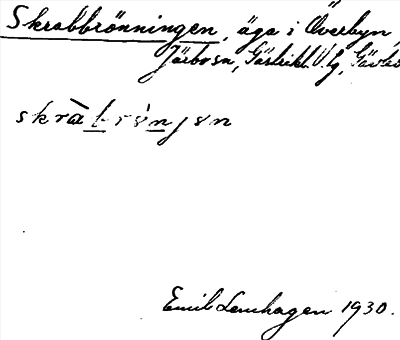 Skrabbrönningen, äga i Överbyn,
Järbo sn, Gästrikl. V. lg, Gävleb
skràbrö̀njən
Emil Lenhagen 1930.